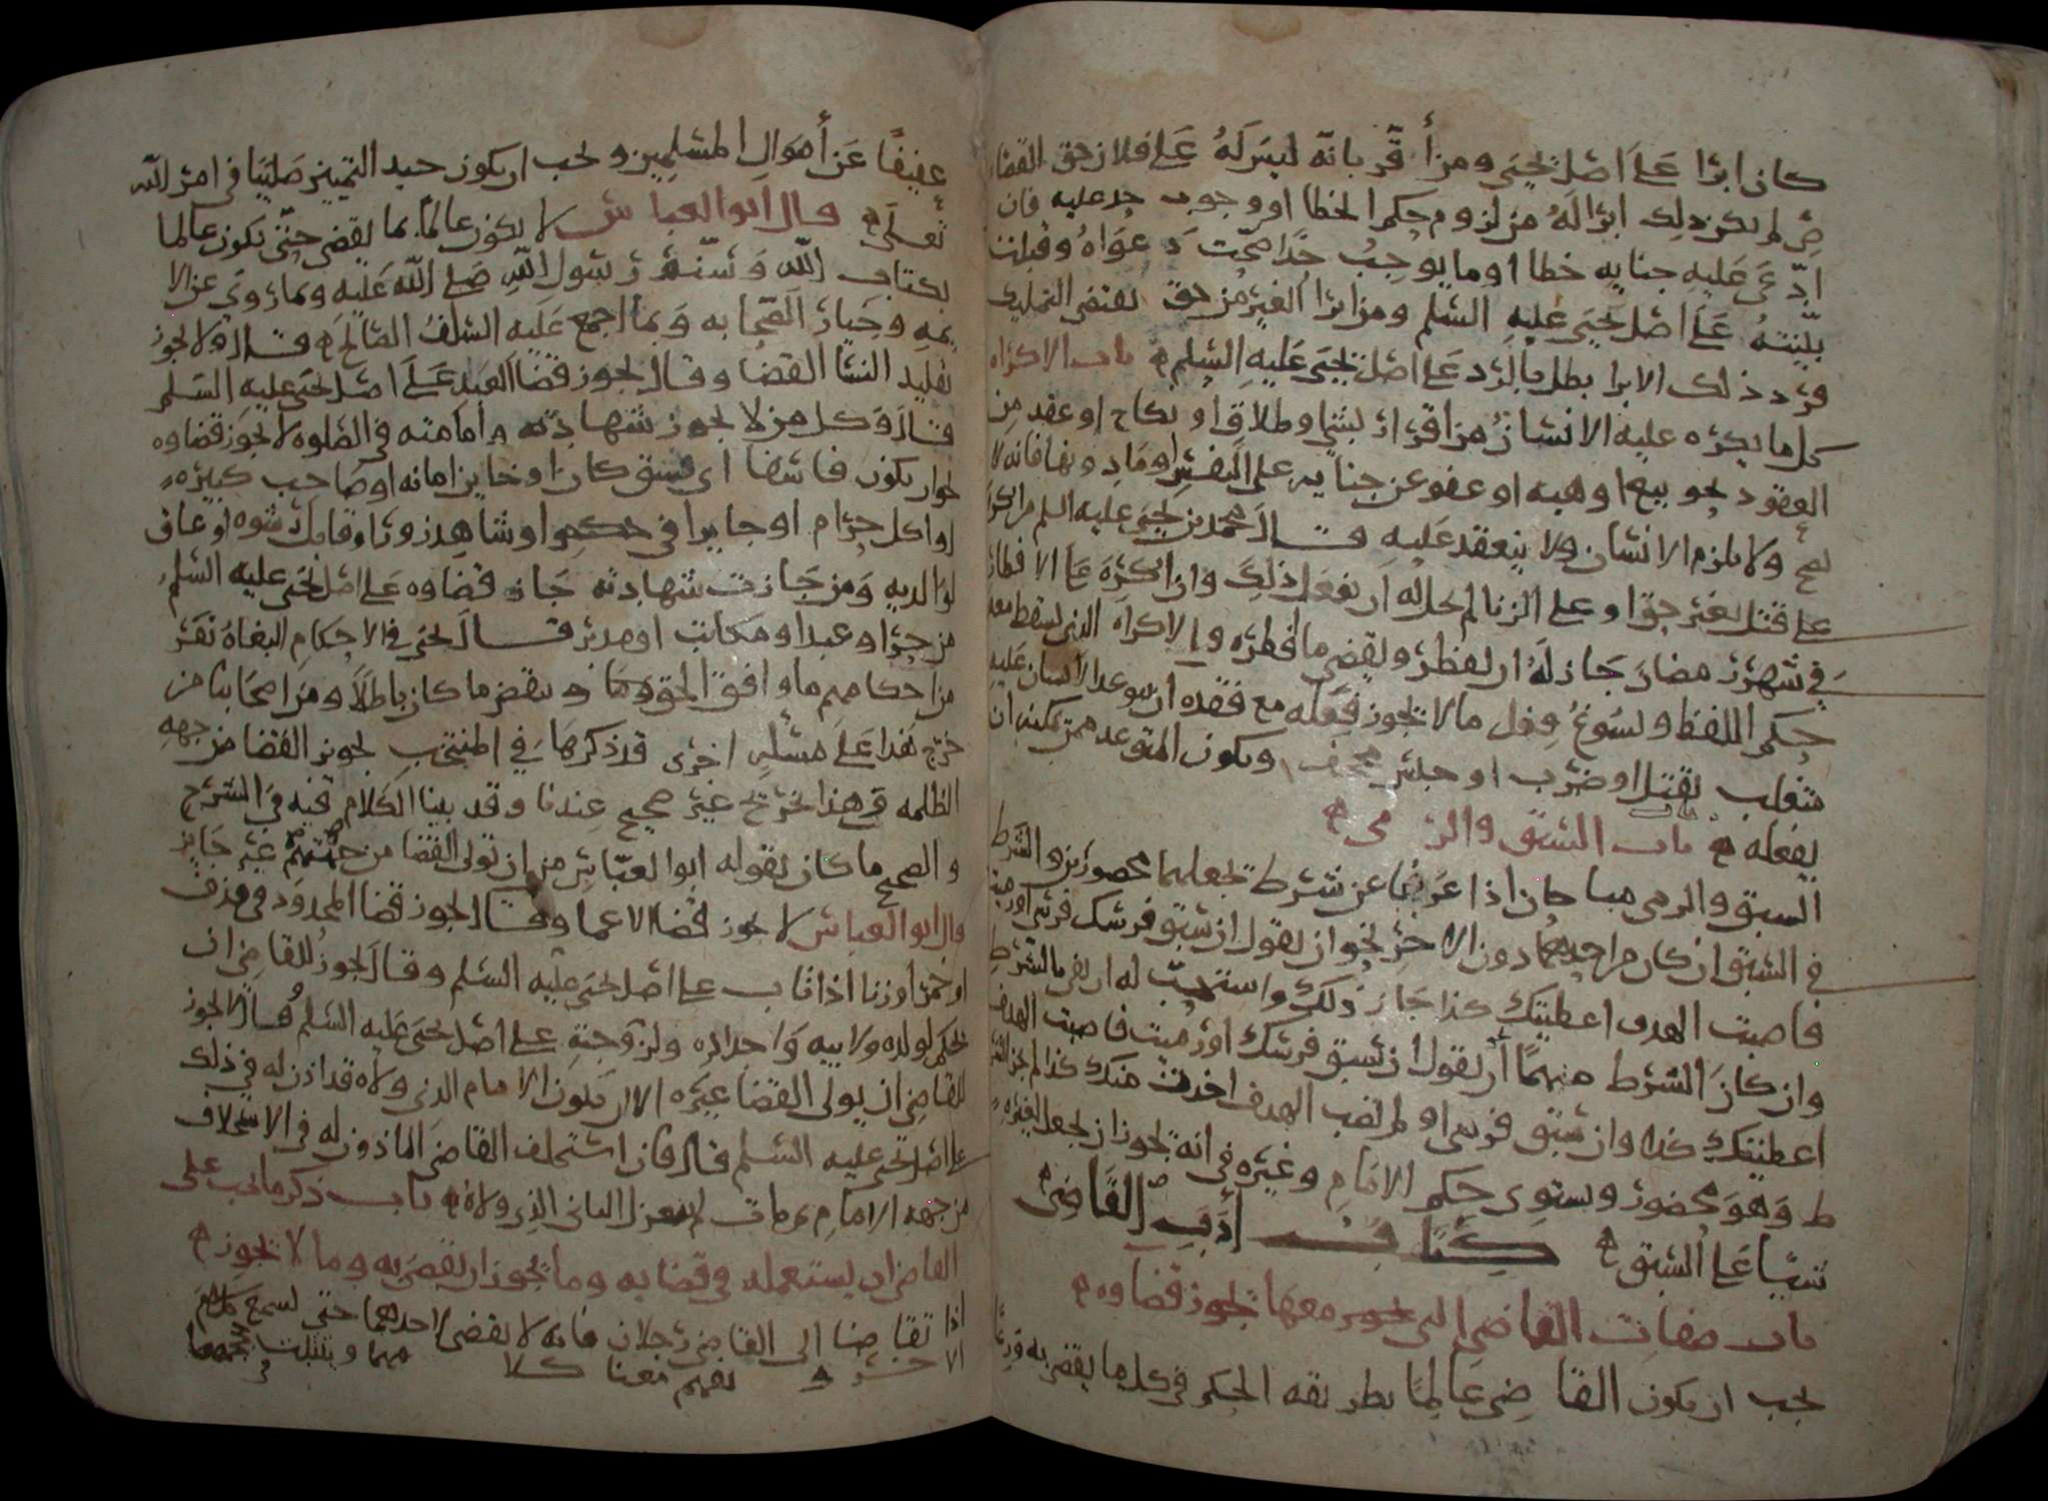 كان ابرا على اصل يحيى ومن أقر بانه ليس له على فلان حق القضاء
ثم لم يكن ذلك ابرا له من لزوم حكم الخطا او وجوب حد عليه فان
ادعى عليه جنايه خطا او ما يوجب حدا صحت دعواه وقبلت
بينته على اصل يحيى عليه السلم ومن ابرا الغير من حق يقتضي التمليك
فرد ذلك الابرا بطل بالرد على اصل يحيى عليه السلم باب الاكراه
كل ما يكره عليه الانسان من اقرار بشي او طلاق او نكاح او عقد من
العقود نحو بيع او هبه او عفو عن جنايه على النفس او مادونها فانه لا
يصح ولا يلزم الانسان ولا ينعقد عليه قال محمد بن يحيى عليه السلم من اكره
على قتل بغير حق او على الزنا لم يحل له ان يفعل ذلك وان اكره على الافطار
في شهر رمضان جاز له ان يفطر ويقضي ما افطره والاكراه الذي يسقط معه
حكم اللفظ ويسوغ فعل ما لا يجوز فعله مع فقده ان يتوعد الانسان عليه
متغلب بقتل او ضرب او حبس مجحف ويكون المتوعد ممن يمكنه ان
يفعله باب السبق والرمي
السبق والرمي مباحان اذا عريا عن شرط يجعلهما محظورين والشرط
في السبق ان كان من احدهما دون الاخر نحو ان يقول ان سبق فرسك فرسي او رميت
فاصبت الهدف اعطيتك كذا جاز ذلك واستحب له ان يفي بالشرط
وان كان الشرط منهما أن يقول ان سبق فرسك او رميت فاصبت الهدف
اعطيتك كذا وان سبق فرسي او لم تصب الهدف اخذت منك كذا لم يجز الشر
ط وهو محظور ويستوي حكم الامام وغيره في انه يجوز ان يجعل لغيره
شيا على السبق كتاب أدب القاضي
باب صفات القاضي التي يجوز معها يجوز قضاوه
يجب ان يكون القاضي عالما بطريقه الحكم في كل ما يقضي به ورعا
عفيفا عن أموال المسلمين ويجب ان يكون جيد التمييز صليبا في امر الله
تعلى قال ابو العباس لا يكون عالما بما يقضي حتى يكون عالما
بكتاب الله وسنة رسول الله صلى الله عليه وبما روي عن الا
يمه وخيار الصحابه وبما اجمع عليه السلف الصالح قال ولا يجوز
تقليد النسا القضا وقال يجوز قضا العبد على اصل يحيى عليه السلم
قال وكل من لا يجوز شهادته وامامته في الصلوه لا يجوز قضاوه
نحو ان يكون فاسقا اي فسق كان او خاين امانه او صاحب كبيره
او اكل حرام او جايرا في حكم او شاهد زور او قابل رشوه او عاق
لوالديه ومن جازت شهادته جاز قضاوه على اصل يحيى عليه السلم
من حر او عبد او مكاتب او مدبر قال يحيى في الاحكام البغاه تقر
من احكامهم ما وافق الحق وينقض ما كان باطلا ومن اصحابنا من
خرج هذا على مسله اخرى قد ذكرها في المنتخب يجوز القضا من جهه
الظلمه وهذا تخريج غير صحيح عندنا وقد بينا الكلام فيه في الشرح
والصحيح ما كان يقوله ابو العباس من ان تولي القضا من جهتهم غير جايز
قال ابو العباس لا يجوز قضا الاعما وقال يجوز قضا المحدود في قذف
او خمر او زنا اذا تاب على اصل يحيى عليه السلم وقال يجوز للقاضي ان
يحكم لولده ولابيه واجداده ولزوجته على اصل يحيى عليه السلم قال لا يجوز
للقاضي ان يولي القضا غيره الا ان يكون الامام الذي ولاه قد اذن له في ذلك
على اصل يحيى عليه السلم قال فان استخلف القاضي الماذون له في الاستخلاف
من جهه الامام ثم مات لم ينعزل الثاني الذي ولاه باب ذكر ما يجب على
القاضي ان يستعمله في قضايه وما يجوز ان يقضي به وما لا يجوز
اذا تقاضا الى القاضي رجلان فانه لا يقضي لاحدهما حتى يسمع كلام
الاخر ويفهم معنا كلا مهما ويتثبت